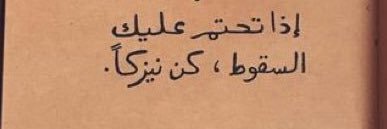 إذا تحتم عليك
السقوط، كن نيزكاً.